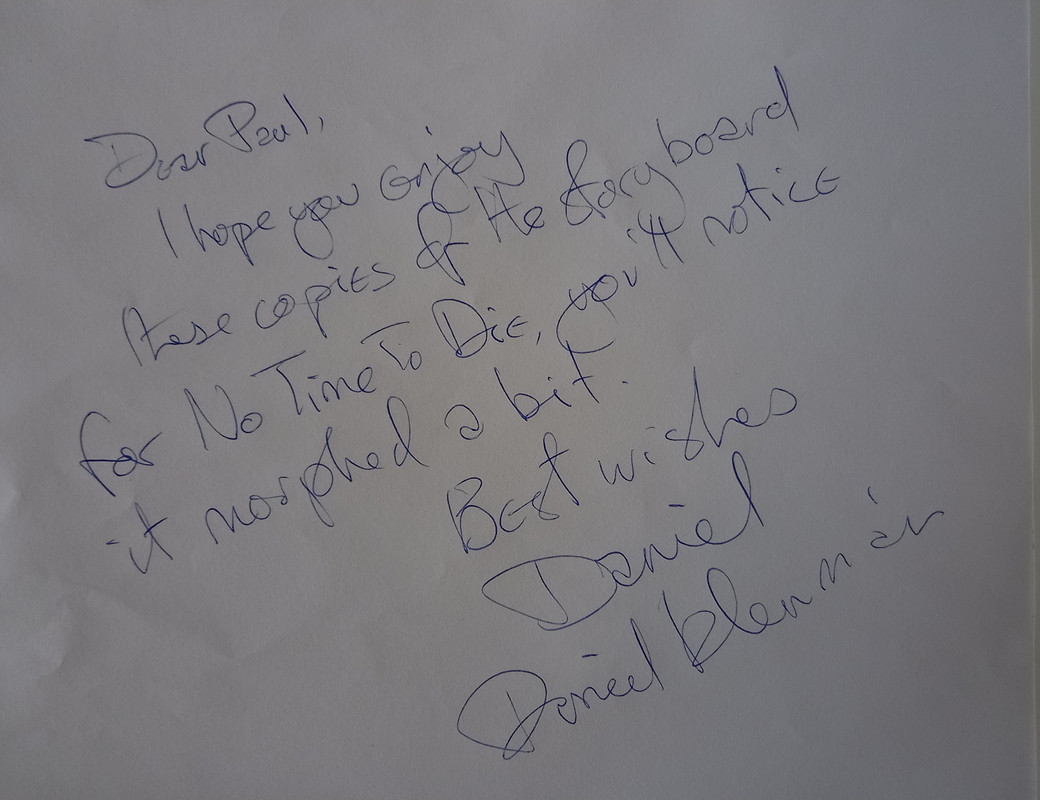 Dear Paul,
I hope you enjoy
these copies of the storyboard
for No Time To Die, you'll notice
it morphed a bit.
Best wishes
Daniel
Daniel Kleinman